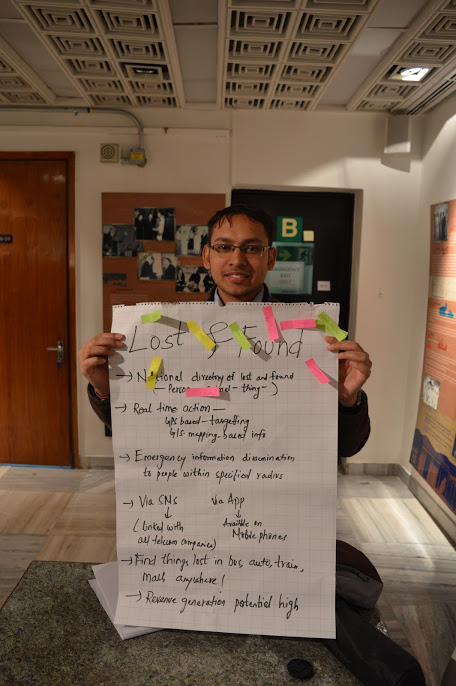 B
EMERGENCY
EXIT
Lost & Found
→ National directory of lost and found
→ Real time action —
GPS based - targetting
GIS mapping-based info
→ Emergency information dissemination
to people within specified radius
→ Via SMS via App
(Linked with Availble on
all telecom companies) Mobile phones
→ Find things lost in bus, auto, train,
mall anywhere!
→ Revenue generation potential high